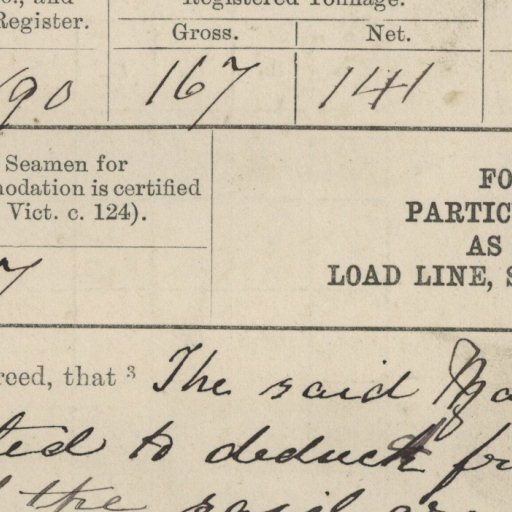 Registered Tonnage.
Register.
Gross. Net.
90 167 141
Seamen for
modation is certified
Vict. c. 124).
FO
PARTIC
AS
LOAD LINE, S
7
reed, that ³ The said
ted to deduct fr
the said